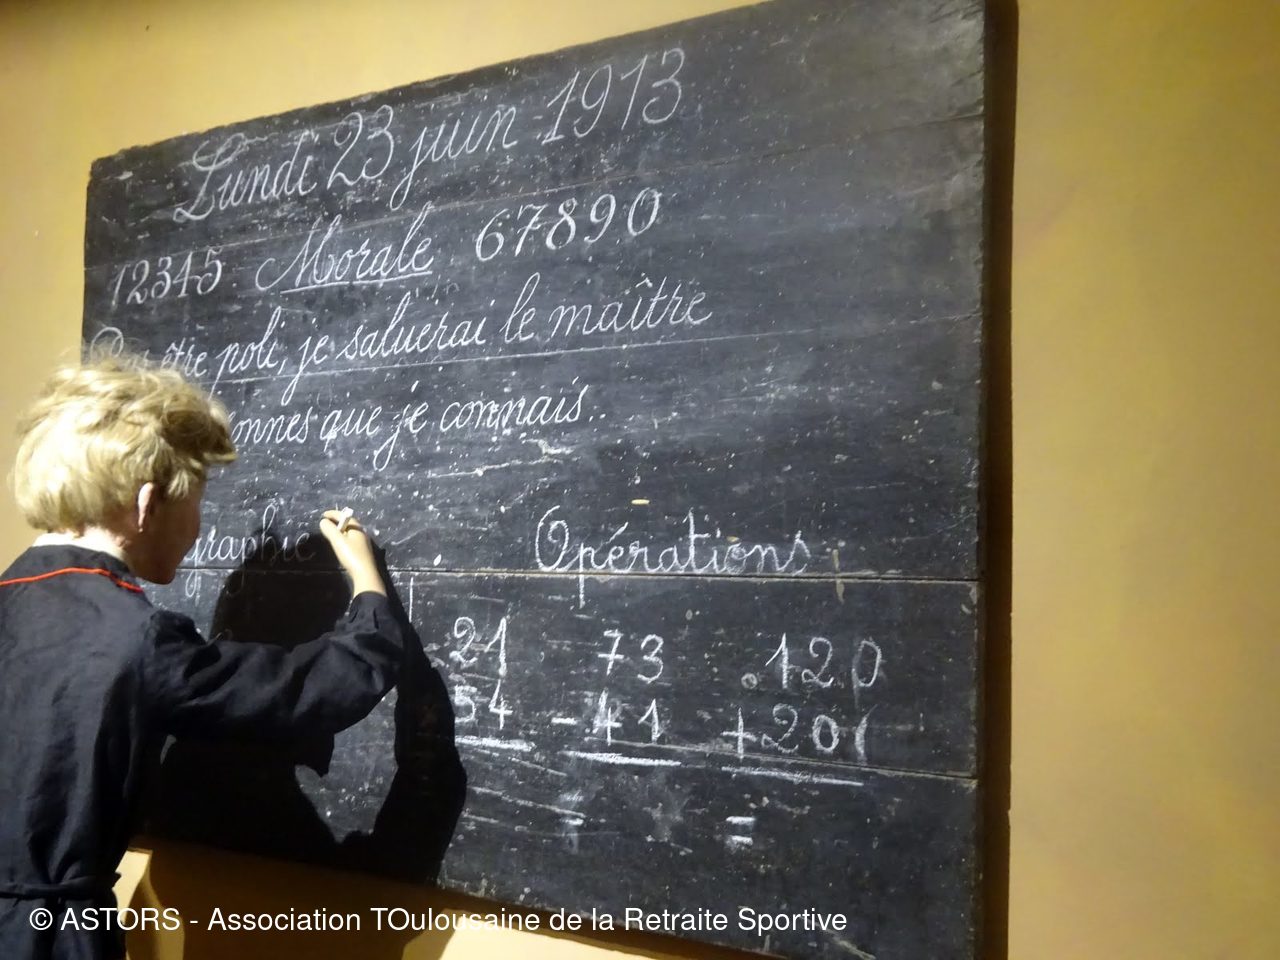 Lundi 23 juin 1913
12345 Morale 67890
être poli, je saluerai le maître
que je connais..
Opérations
21 73 120
54 - 41 + 201
=
© ASTORS - Association TOulousaine de la Retraite Sportive